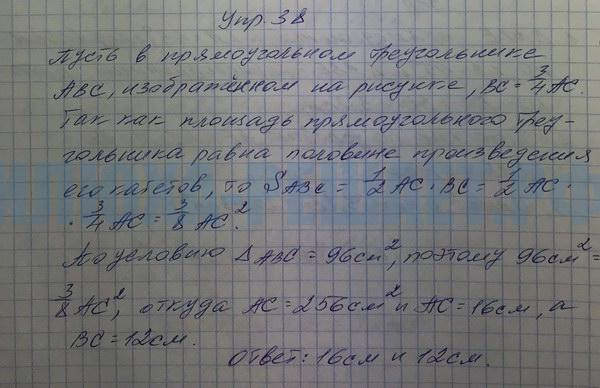 Упр. 38
Пусть в прямоугольном треугольнике
ABC, изображённом на рисунке, BC = 3/4 AC.
Так как площадь прямоугольного треу-
гольника равна половине произведения
его катетов, то SABC = 1/2 AC · BC = 1/2 AC ·
· 3/4 AC = 3/8 AC².
По условию ΔABC = 96см², поэтому 96см² =
3/8 AC², откуда AC = 256см² и AC = 16см, а
BC = 12см.
Ответ: 16см и 12см.